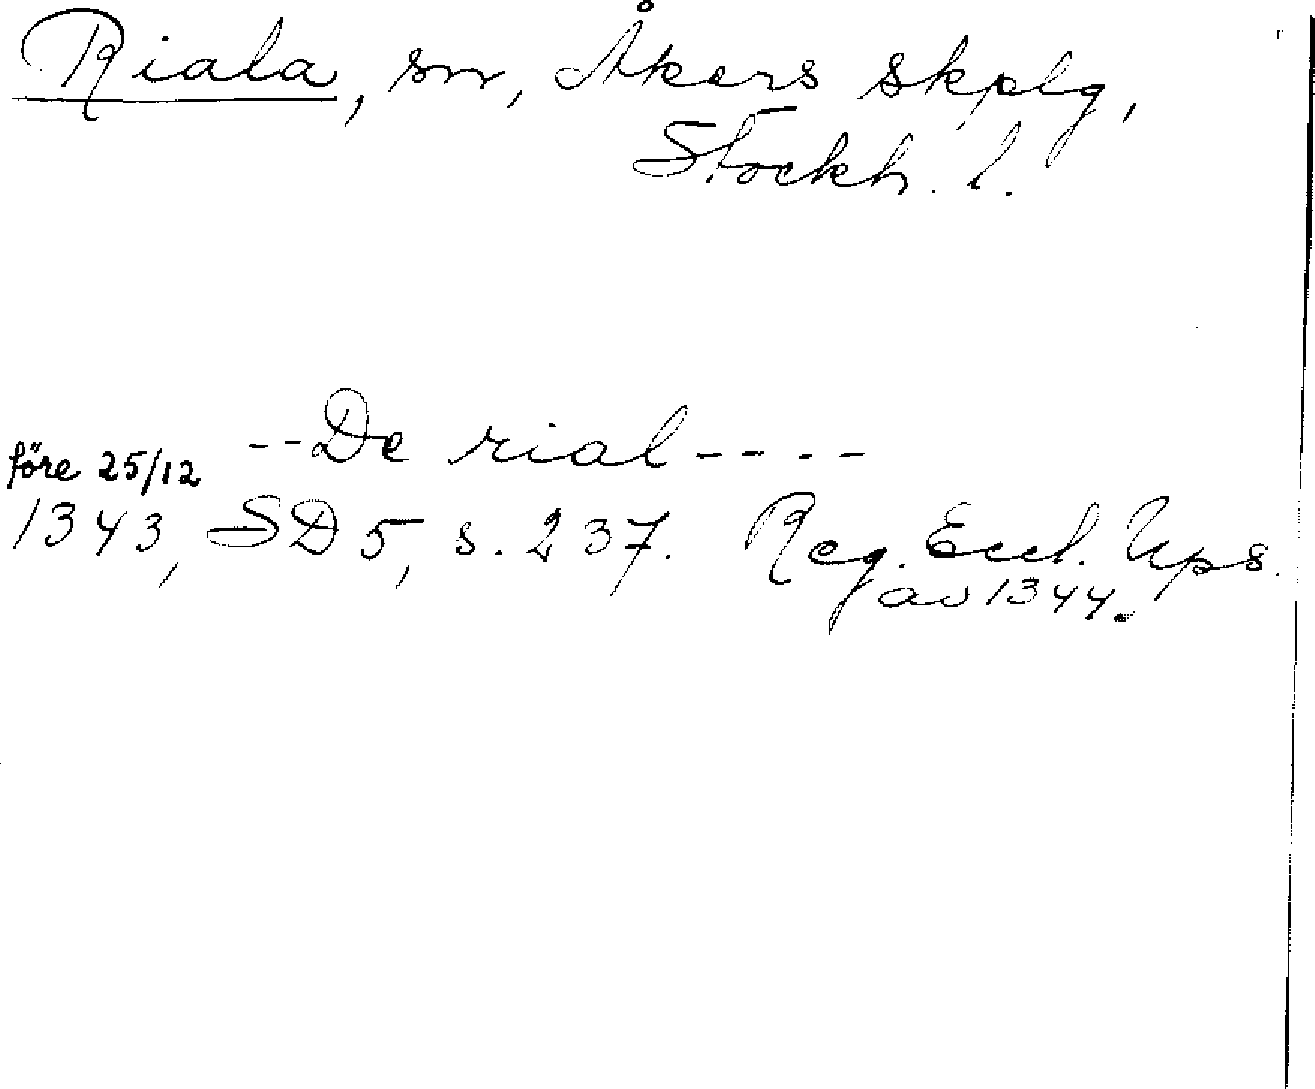 Riala, sn, Åkers skplg,
Stockh. l.
--De rial----
före 25/12
1343, SD 5, s. 237. Reg. Eccl. Ups.
av 1344.